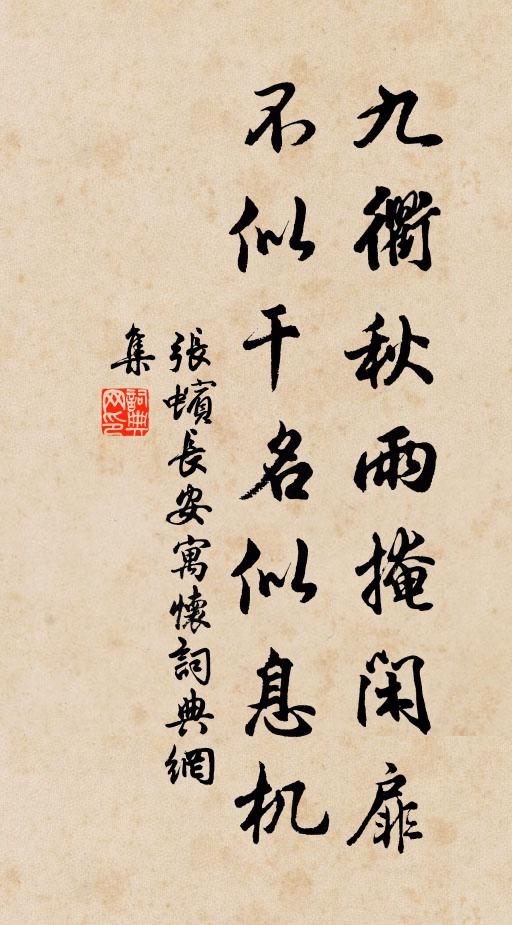 九衢秋雨掩閑扉
不似干名似息机
張蠙長安寓懷詞典網
集
詞典网印